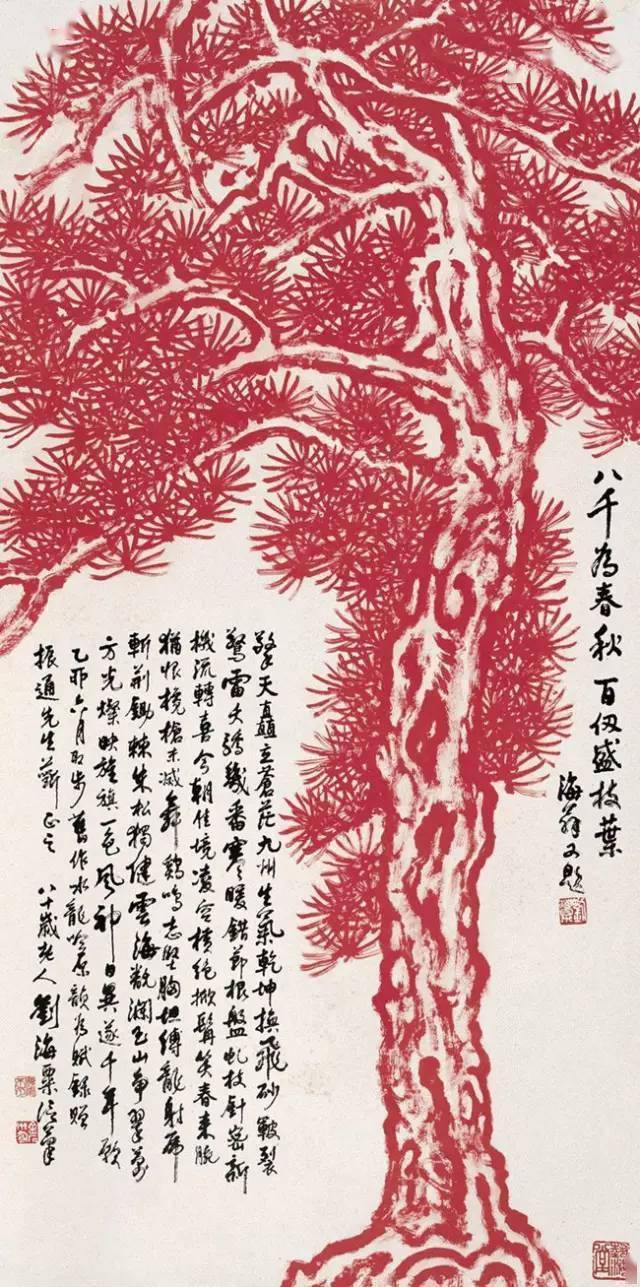 八千為春秋百仭盛枝葉
海翁又題
擎天矗立蒼茫九州生氣乾坤換飛砂皴裂
驚雷火鑄幾番寒暖錯節根盤虬枝針密新
機流轉喜今朝佳境凌空橫絕掀髯笑春來
猶恨攙槍未滅舞鷄鳴志堅胸坦縛龍射虎
斬荆鋤棘朱松獨健雲海翻瀾玉山争翠萬
方光燦映旌旗一色風神日異遂千年願
乙卯六月取步舊作水龍吟原韻為賦錄贈
振通先生蘄正之 八十歲老人劉海粟